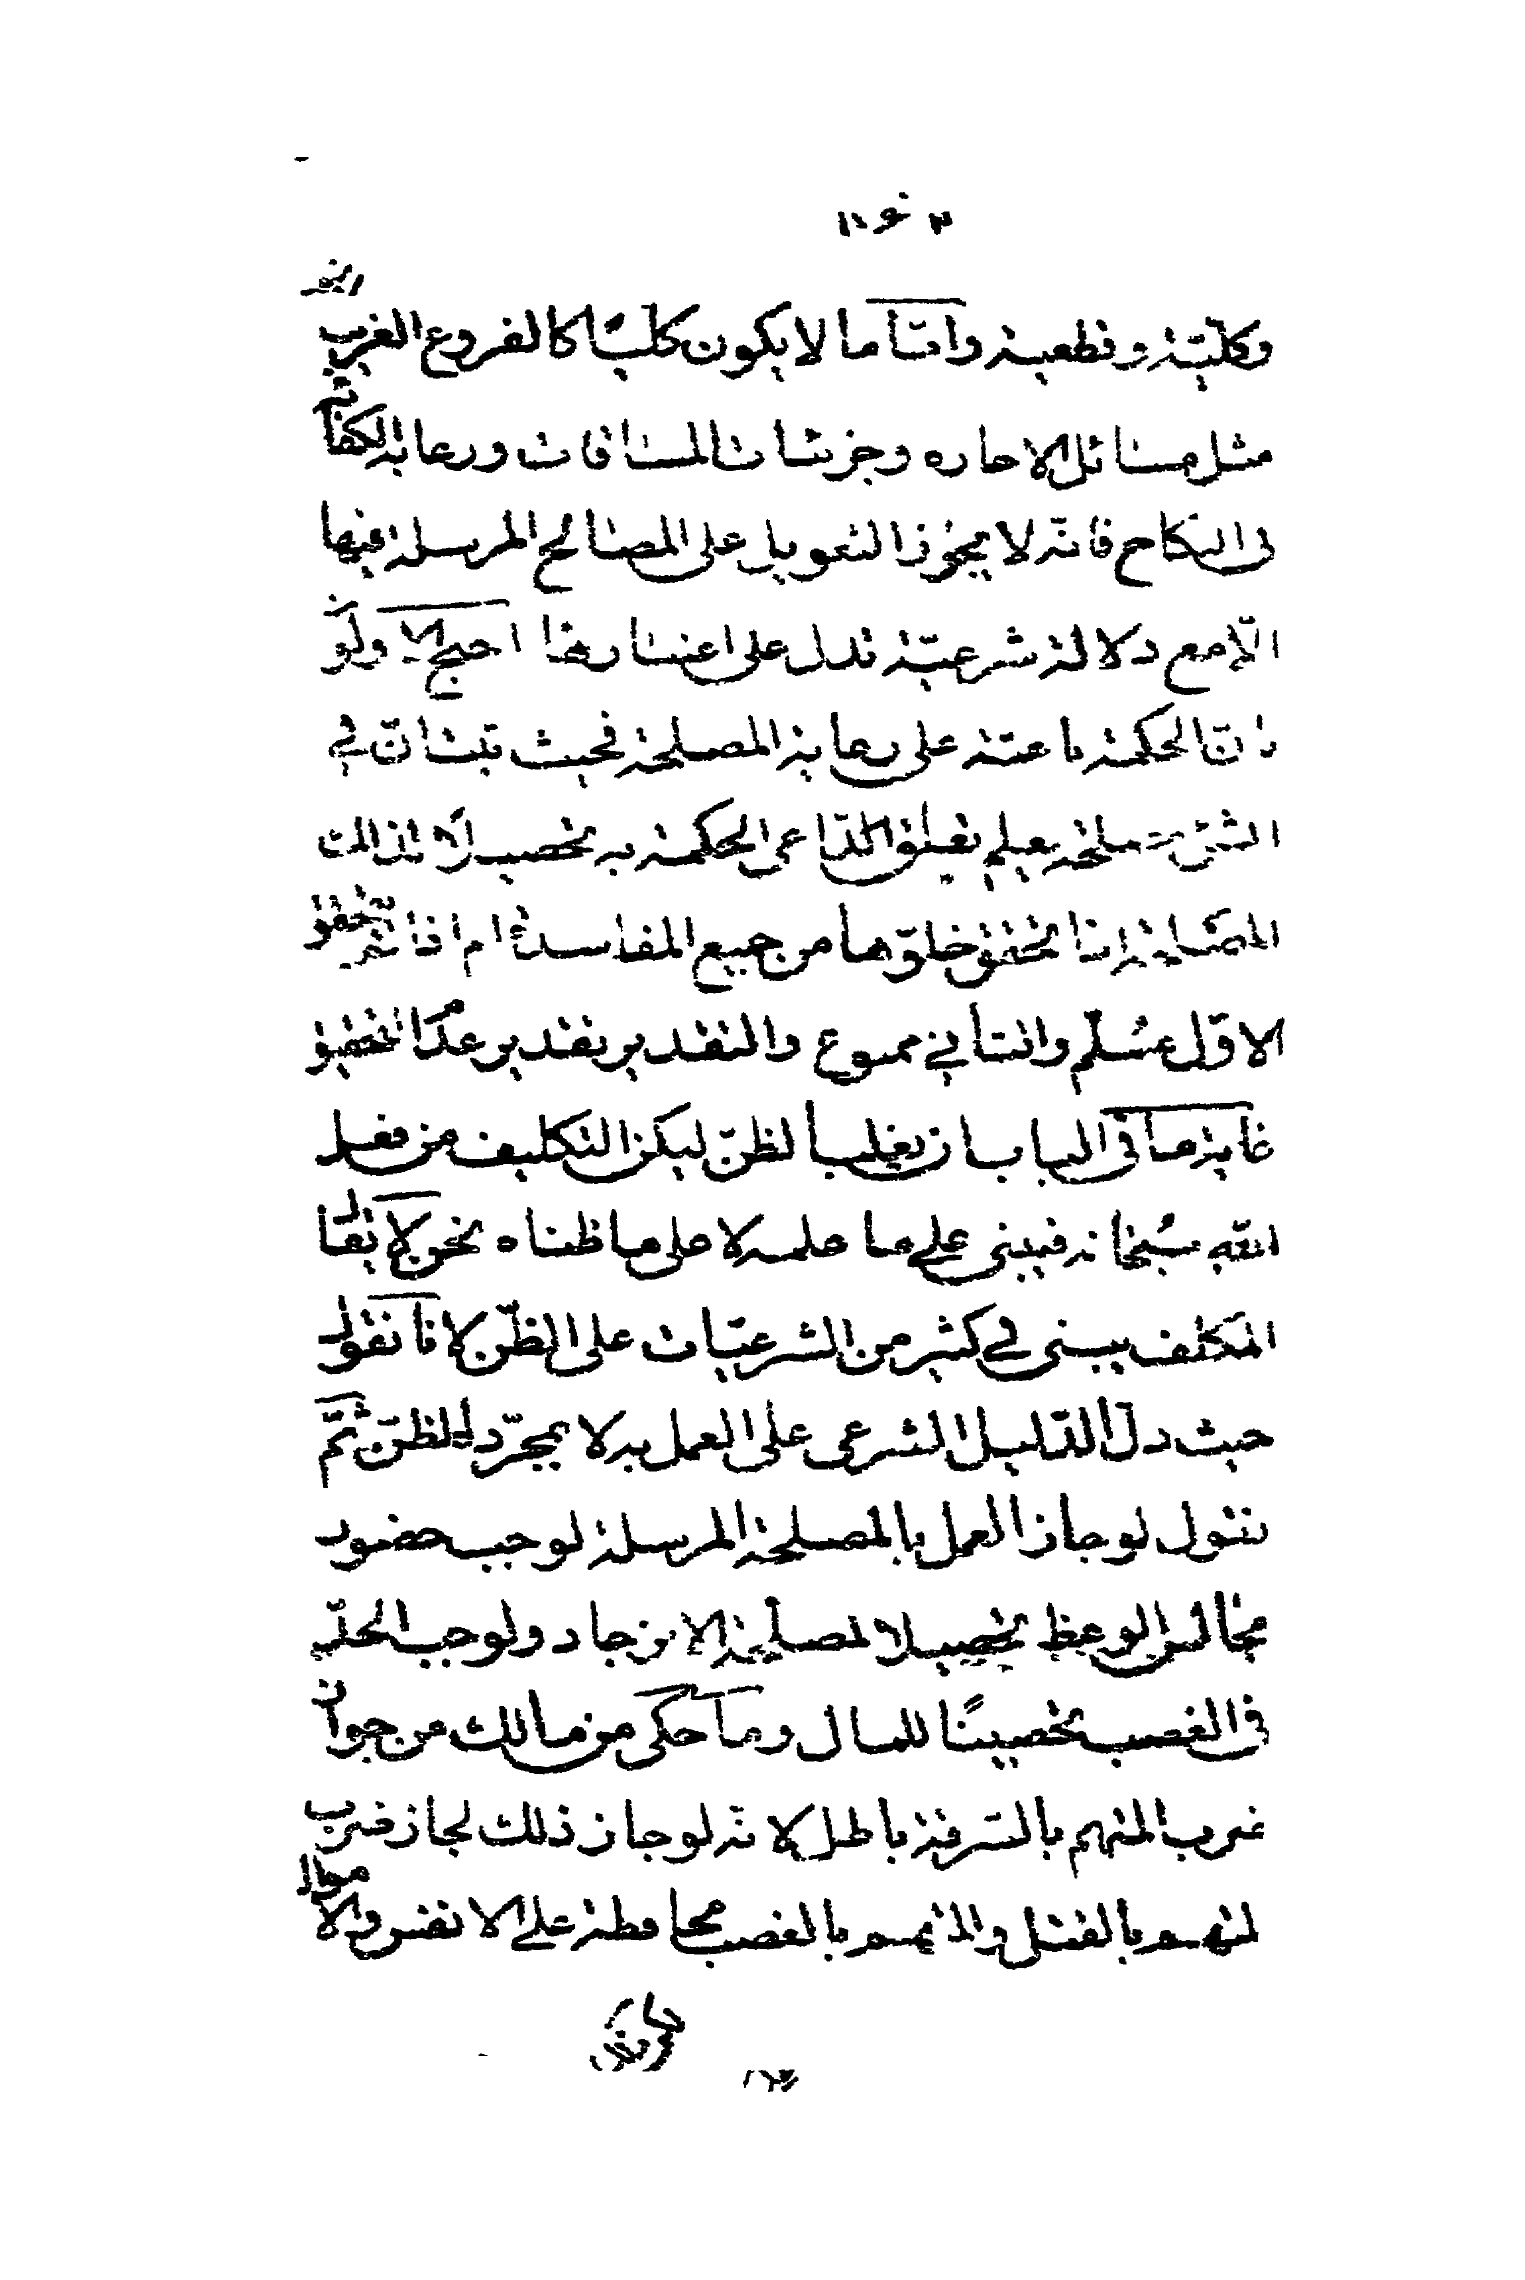 وكلّيّة وقطعية وامّا ما لا يكون كليّا كالفروع الغريبة
مثل مسائل الاجاره وجزئيات المسافات ورعاية الكفائة
فى النكاح فانّه لا يجوز التعويل على المصالح المرسلة فيها
الّا مع دلالة شرعيّة تدل على اعتبارها احتج الاولون
بانّ الحكمة باعثة على رعاية المصلحة فحيث تبث انّ في
الشئ مصلحة يعلم تعلق الدّاعى الحكمة به تحصيلا لتلك
المصلحة اذا تحقق خلوّها من جميع المفاسد ام اذا لم يتحقق
الاوّل مسلّم والثانے ممنوع والتقدير تقدير عدم التحقيق
غاية ما فى الباب ان يغلب الظنّ ليكن التكليف من فعل
اللّه سبحانه فيبنى علے ما علمه لا على ما ظنناه نحن لا يقال
المكلف يبنى في كثير من الشرعيّات على الظّن لانا نقول
حيث دلّ الدّليل الشرعى على العمل به لا بمجرّد الظنّ ثمّ
نقول لو جاز العمل بالمصلحة المرسلة لوجب حضور
مجالس الوعظ تحصيلا لمصلحة الانزجار ولوجب الحدّ
فى الغصب تحصينًا للمال وما حكى من مالك من جواز
ضرب المتهم بالسرقة باطل لانّه لو جاز ذلك لجاز ضرب
المتهم بالقتل والمتهم بالغصب محافظة علے الانفس والاموال